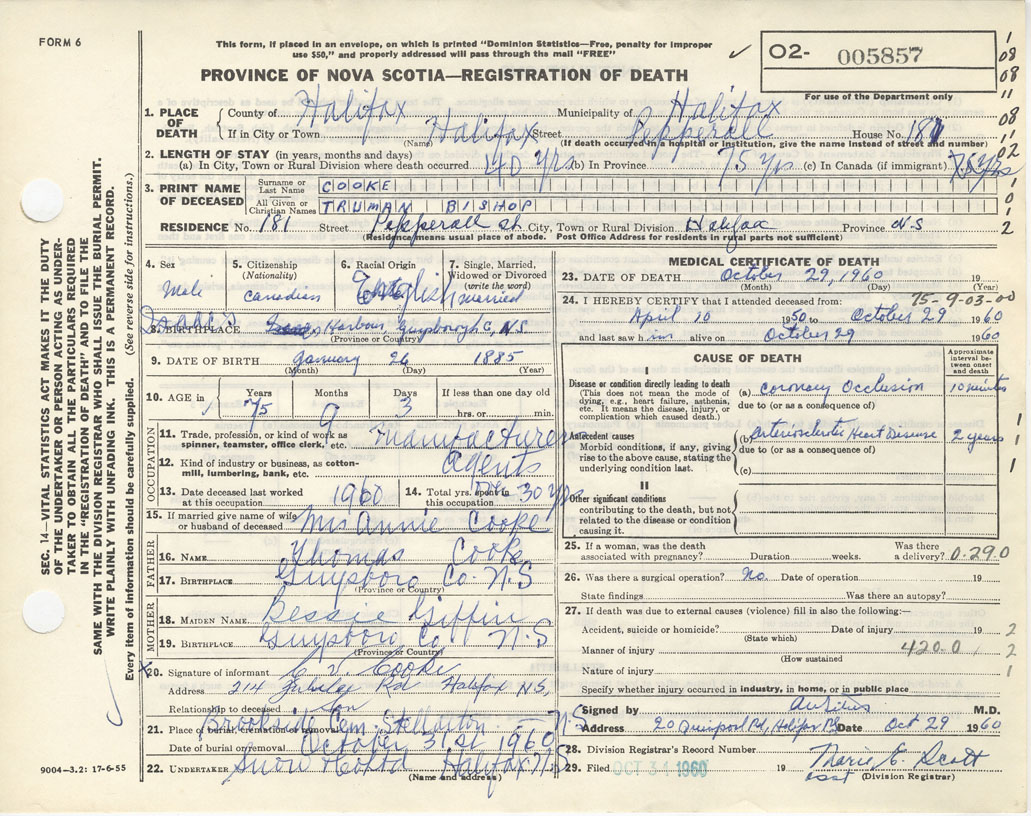 FORM 6
This form, if placed in an envelope, on which is printed "Dominion Statistics—Free, penalty for improper
use $50," and properly addressed will pass through the mail "FREE"
PROVINCE OF NOVA SCOTIA—REGISTRATION OF DEATH
O2- 005857
For use of the Department only
1. PLACE OF DEATH { County of Halifax Municipality of Halifax
If in City or Town Halifax Street Pepperall House No. 181
(Name) (If death occurred in a hospital or institution, give the name instead of street and number)
2. LENGTH OF STAY (in years, months and days)
(a) In City, Town or Rural Division where death occurred 40 yrs (b) In Province 75 yrs (c) In Canada (if immigrant) 75 yrs
3. PRINT NAME OF DECEASED
Surname or Last Name COOKE
All Given or Christian Names TRUMAN BISHOP
RESIDENCE No. 181 Street Pepperall St. City, Town or Rural Division Halifax Province N-S
(Residence means usual place of abode. Post Office Address for residents in rural parts not sufficient)
4. Sex Male
5. Citizenship (Nationality) Canadian
6. Racial Origin English
7. Single, Married, Widowed or Divorced (write the word) married
8. BIRTHPLACE Isaac's Harbour, Guysborough C, N.S
(Province or Country)
9. DATE OF BIRTH January 26 1885
(Month) (Day) (Year)
10. AGE in Years 75 Months 9 Days 3 If less than one day old
hrs. or min.
OCCUPATION
11. Trade, profession, or kind of work as spinner, teamster, office clerk, etc. manufacturers
12. Kind of industry or business, as cotton-mill, lumbering, bank, etc. Agents
13. Date deceased last worked at this occupation 1960
14. Total yrs. spent in 30 yrs
15. If married give name of wife or husband of deceased Mrs Annie Cooke
FATHER
16. NAME Thomas Cooke
17. BIRTHPLACE Guysboro Co. N.S
(Province or Country)
MOTHER
18. MAIDEN NAME Bessie Giffin
19. BIRTHPLACE Guysboro Co N-S
(Province or Country)
20. Signature of informant C V Cooke
Address 214 Jubilee Rd Halifax N.S,
Relationship to deceased Son
21. Place of burial, cremation or removal Brookside Cem. Stellarton — N.S
Date of burial or removal October 31st 1960
22. UNDERTAKER Snow Co Ltd Halifax N.S
(Name and address)
9004—3.2: 17-6-55
MEDICAL CERTIFICATE OF DEATH
23. DATE OF DEATH October 29, 1960 19
(Month) (Day) (Year)
75-9-03-00
24. I HEREBY CERTIFY that I attended deceased from:
April 10 1950 to October 29 1960
and last saw h im alive on October 29 1960
CAUSE OF DEATH
Approximate interval between onset and death
I
Disease or condition directly leading to death
(This does not mean the mode of dying, e.g., heart failure, asthenia, etc. It means the disease, injury, or complication which caused death.)
(a) Coronary Occlusion 10 minutes
due to (or as a consequence of)
Antecedent causes
Morbid conditions, if any, giving rise to the above cause, stating the underlying condition last.
(b) Arteriosclerotic Heart Disease 2 years
due to (or as a consequence of)
(c)
II
Other significant conditions
contributing to the death, but not related to the disease or condition causing it.
25. If a woman, was the death associated with pregnancy? Duration weeks. Was there a delivery? 0-29.0
26. Was there a surgical operation? No. Date of operation 19
State findings Was there an autopsy?
27. If death was due to external causes (violence) fill in also the following:—
Accident, suicide or homicide? Date of injury 19
(State which)
Manner of injury 420-0
(How sustained)
Nature of injury
Specify whether injury occurred in industry, in home, or in public place
Signed by M.D.
Address 20 Quinpool Rd, Halifax Date Oct 29 1960
28. Division Registrar's Record Number
29. Filed OCT 31 1960 19 Marie E. Scott
asst (Division Registrar)
SEC. 14—VITAL STATISTICS ACT MAKES IT THE DUTY
OF THE UNDERTAKER OR PERSON ACTING AS UNDER-
TAKER TO OBTAIN ALL THE PARTICULARS REQUIRED
IN THE "REGISTRATION OF DEATH" AND FILE THE
SAME WITH THE DIVISION REGISTRAR WHO SHALL ISSUE THE BURIAL PERMIT.
WRITE PLAINLY WITH UNFADING INK. THIS IS A PERMANENT RECORD.
Every item of information should be carefully supplied. (See reverse side for instructions.)
1
08
08
11
08
02
1
0
1
2
1
1
1
2
2
1